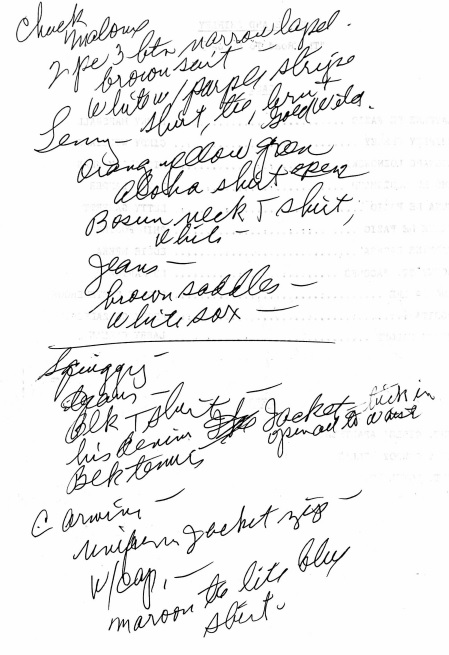 Chuck
Malone
2 pc 3 btn narrow lapel.
brown suit
White w/ purple stripe
shirt, tie brn &
gold wide.
Lenny —
orange yellow green
aloha shirt open
Bosun neck T shirt,
white —
Jeans —
brown saddles —
White sox —
Spinggy —
Jeans —
Blk T Shirt —
his denim Jacket — tuck in
open all to waist
Blk tennis
C armine —
uniform Jacket zip —
w/cap. —
maroon tie lite blue
shirt.